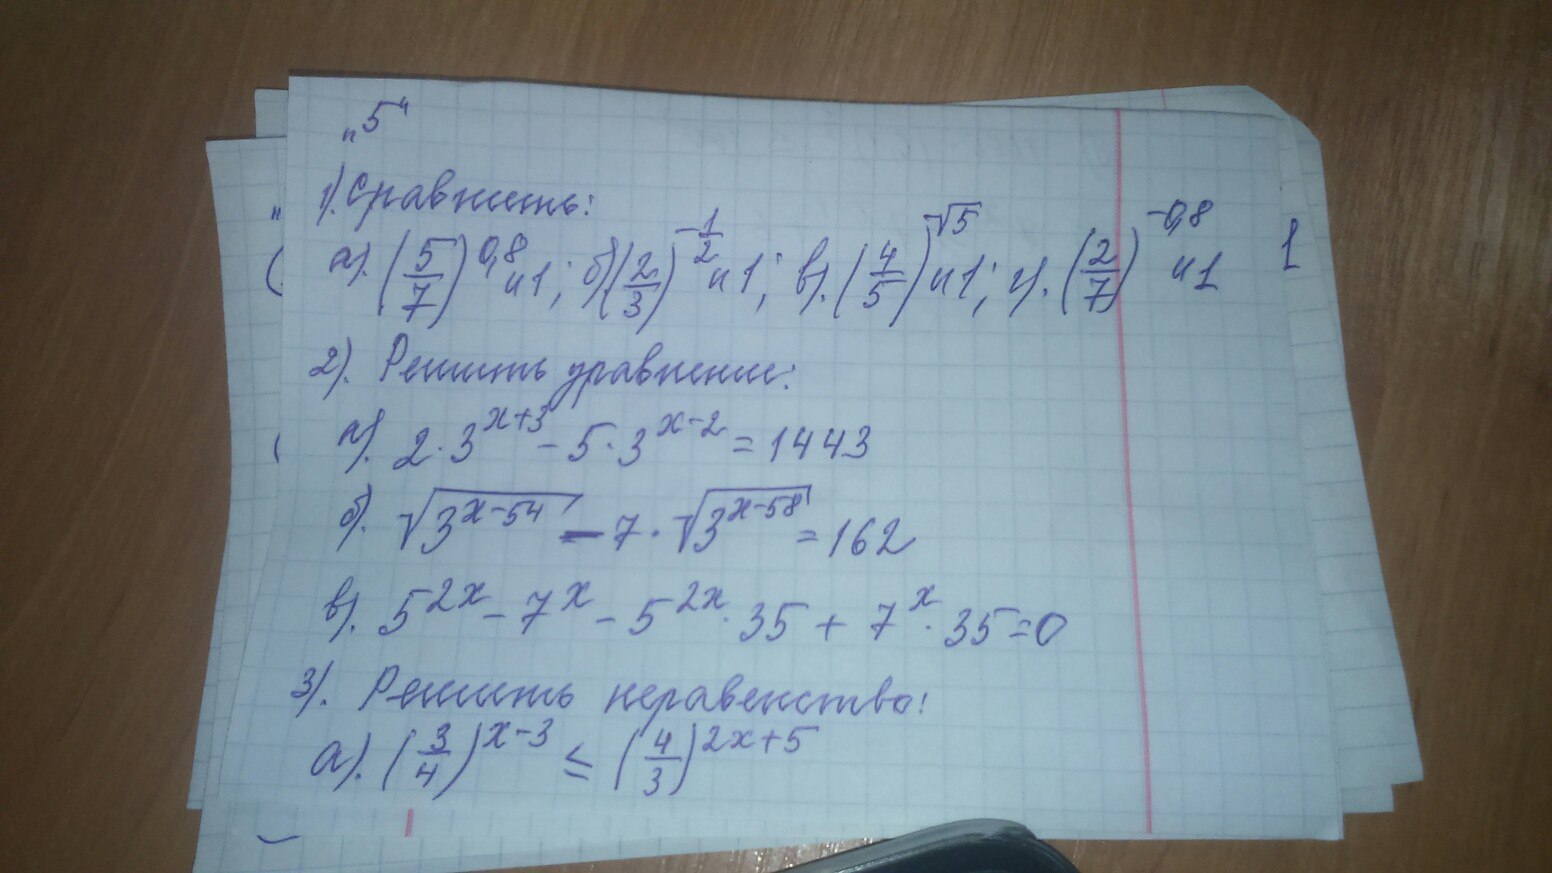 „5“
1). Сравнить:
а). (5/7)^0,8 и 1; б) (2/3)^-1/2 и 1; в). (4/5)^√5 и 1; г). (2/7)^-0,8 и 1
2). Решить уравнение:
а). 2·3^x+3 - 5·3^x-2 = 1443
б). √3^x-54 - 7·√3^x-58 = 162
в). 5^2x - 7^x - 5^2x·35 + 7^x·35=0
3). Решить неравенство:
а). (3/4)^x-3 ≤ (4/3)^2x+5
1